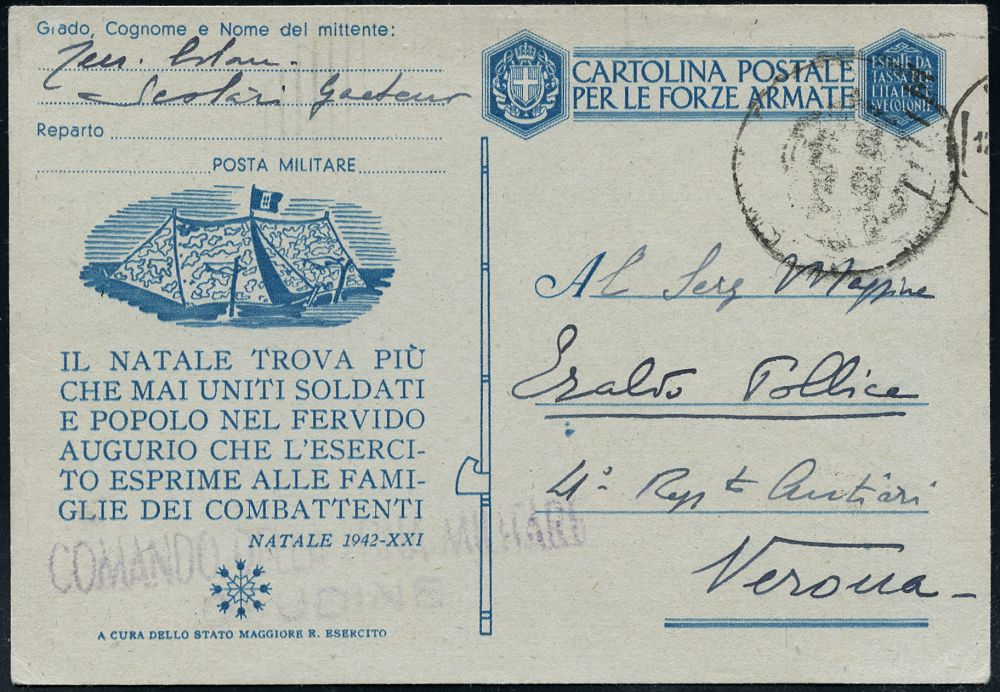 Grado, Cognome e Nome del mittente:
Scolari Gaetano
Reparto
POSTA MILITARE
IL NATALE TROVA PIÙ
CHE MAI UNITI SOLDATI
E POPOLO NEL FERVIDO
AUGURIO CHE L'ESERCI-
TO ESPRIME ALLE FAMI-
GLIE DEI COMBATTENTI
NATALE 1942-XXI
COMANDO MILITARE
UDINE
A CURA DELLO STATO MAGGIORE R. ESERCITO
CARTOLINA POSTALE
PER LE FORZE ARMATE
ESENTE DA
TASSA PER
L'ITALIA E
LE COLONIE
12
Al Serg Maggiore
Eraldo Pollice
4° Regt
Verona